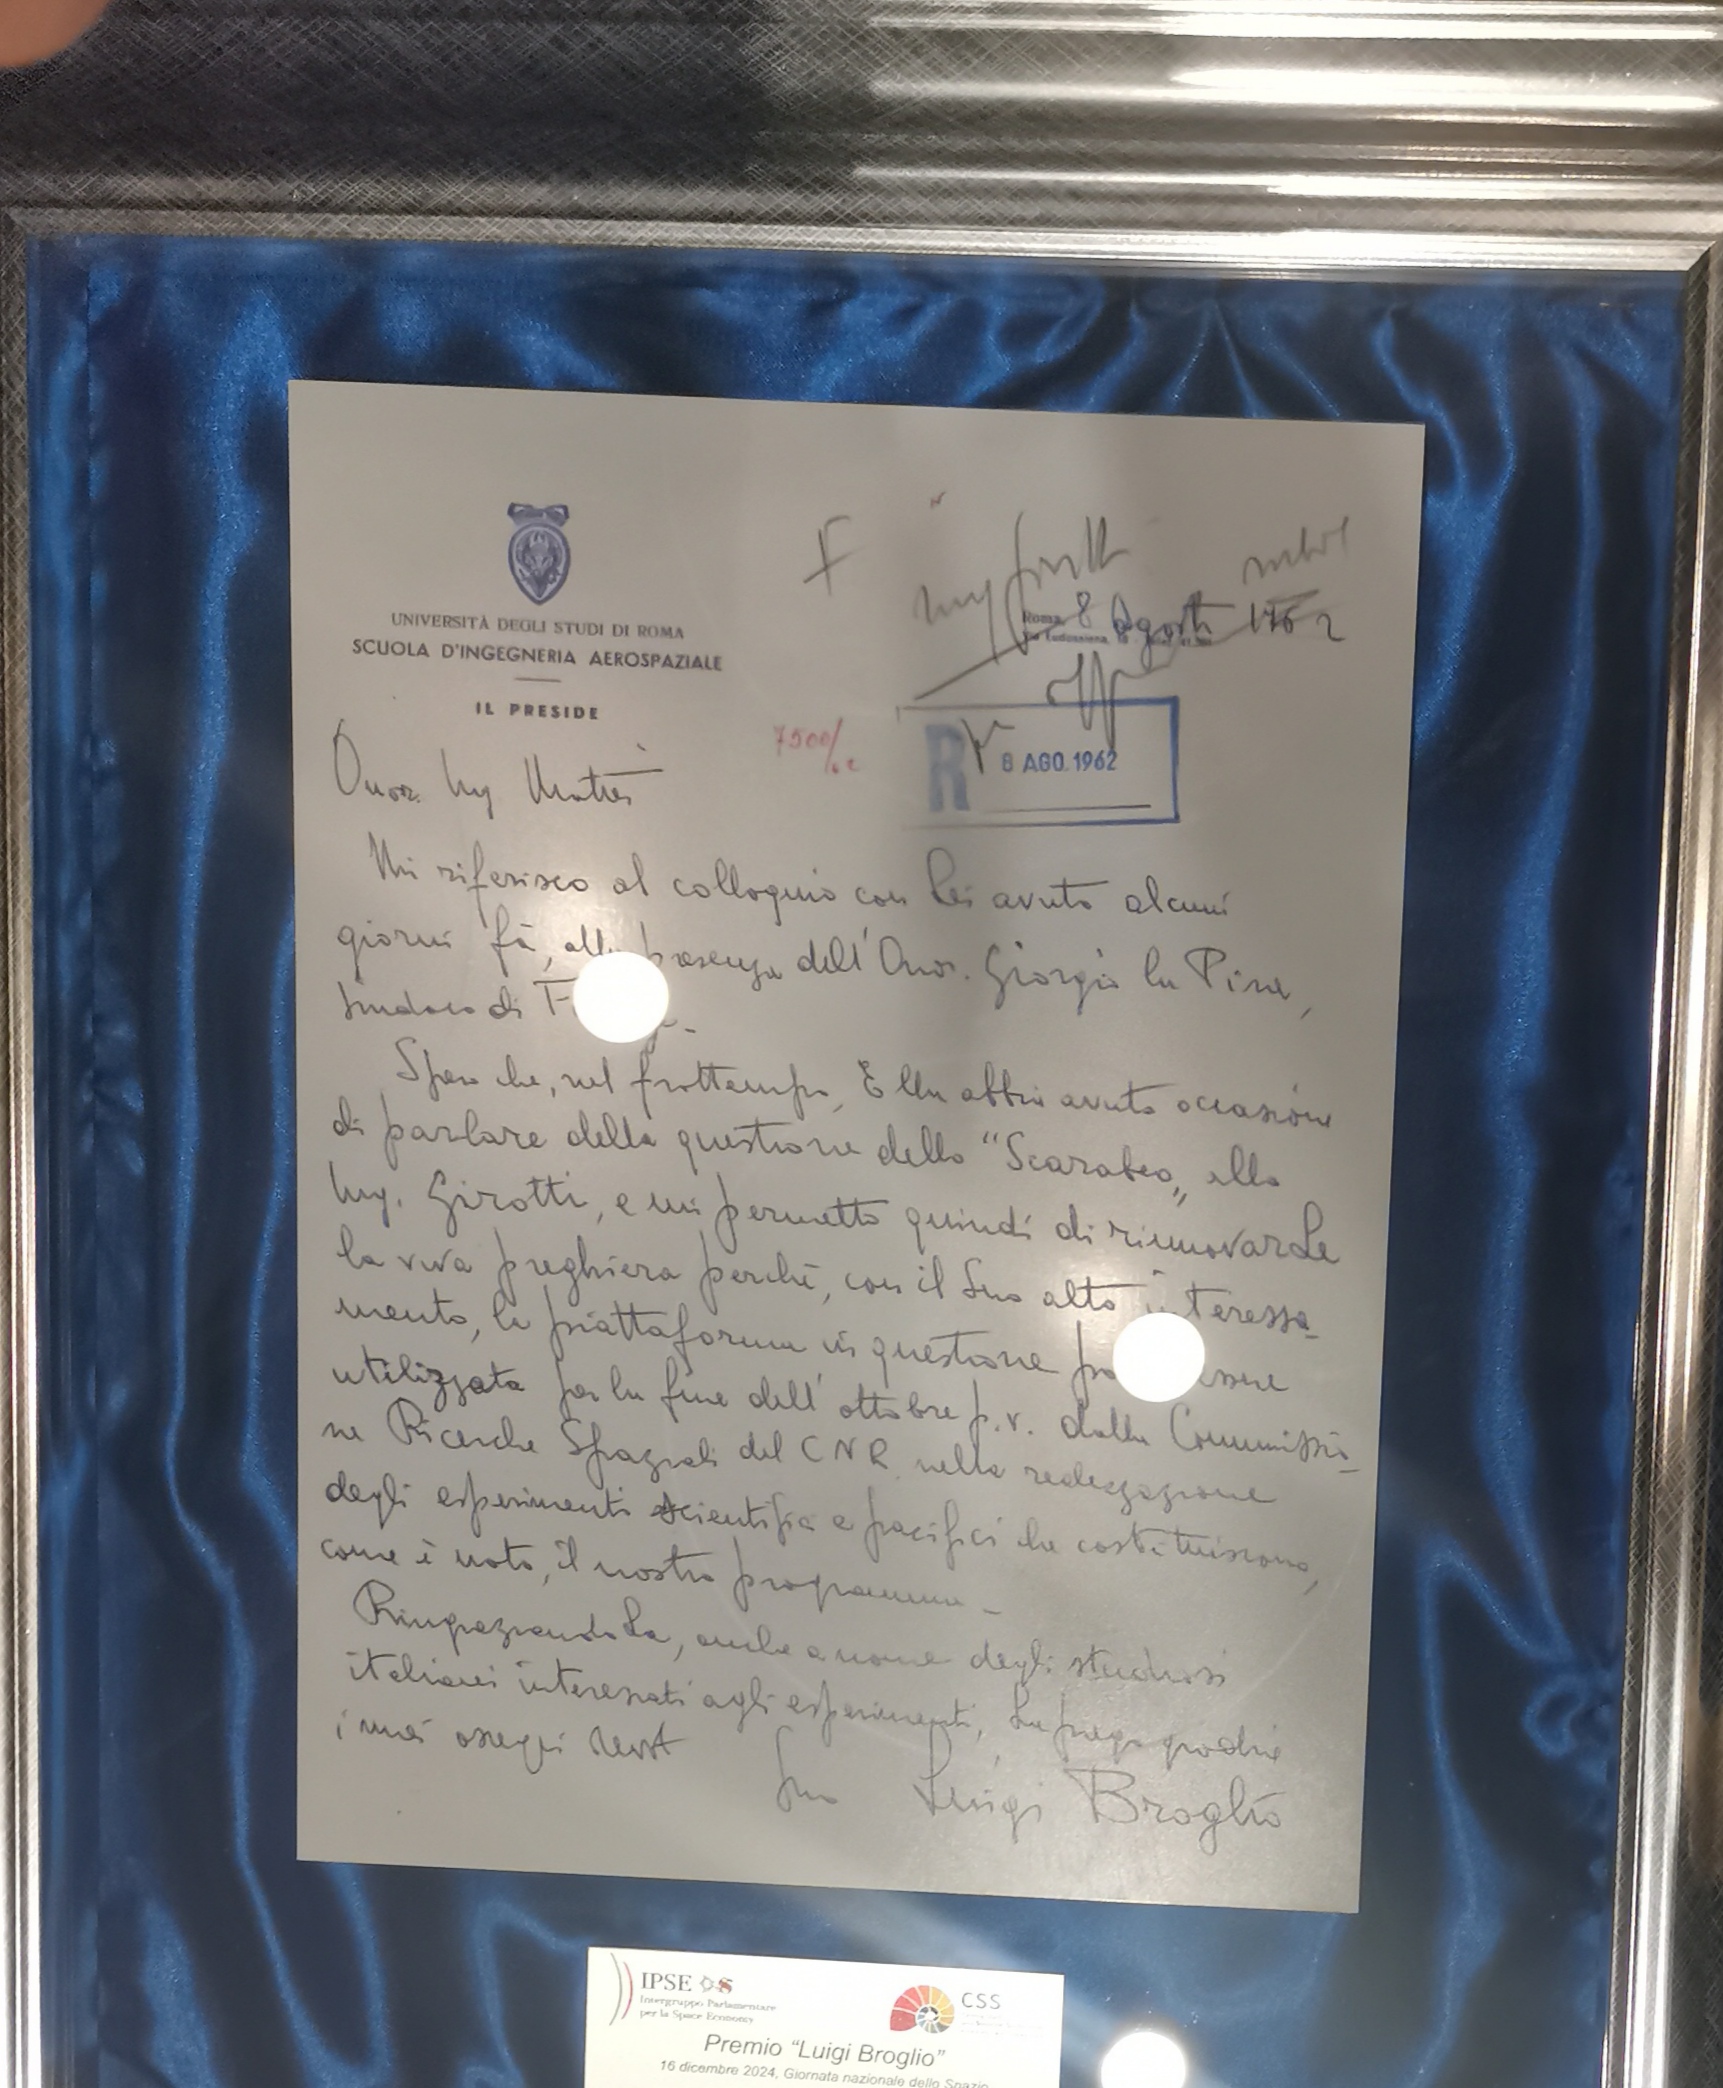 UNIVERSITÀ DEGLI STUDI DI ROMA
SCUOLA D'INGEGNERIA AEROSPAZIALE
IL PRESIDE
Roma, 8 Agosto 1962
7500/62
R 8 AGO. 1962
Onor. Ing Mattei
Mi riferisco al colloquio con Lei avuto alcuni
giorni fà, alla presenza dell'Onor. Giorgio La Pira,
Sindaco di
Spero che, nel frattempo, Ella abbia avuto occasione
di parlare della questione dello "Scarabeo" allo
Ing. Girotti, e mi permetto quindi di rinnovarLe
la viva preghiera perchè, con il Suo alto interessa-
mento, la piattaforma in questione essere
utilizzata per la fine dell'ottobre p.v. dalla Commissio-
ne Ricerche Spaziali del CNR nella realizzazione
degli esperimenti scientifici e pacifici che costituiscono,
come è noto, il nostro programma -
RingraziandoLa, anche a nome degli studiosi
italiani interessati agli esperimenti, La prego gradire
i miei ossequi
Suo Luigi Broglio
IPSE
Intergruppo Parlamentare
per la Space Economy
CSS
Premio "Luigi Broglio"
16 dicembre 2024, Giornata nazionale dello Spazio